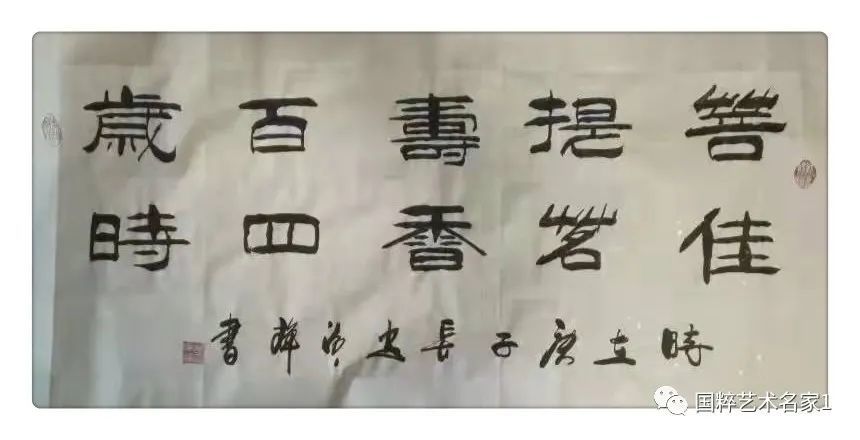 菩提壽百歲
佳茗香四時
時在庚子長安書
国粹艺术名家1